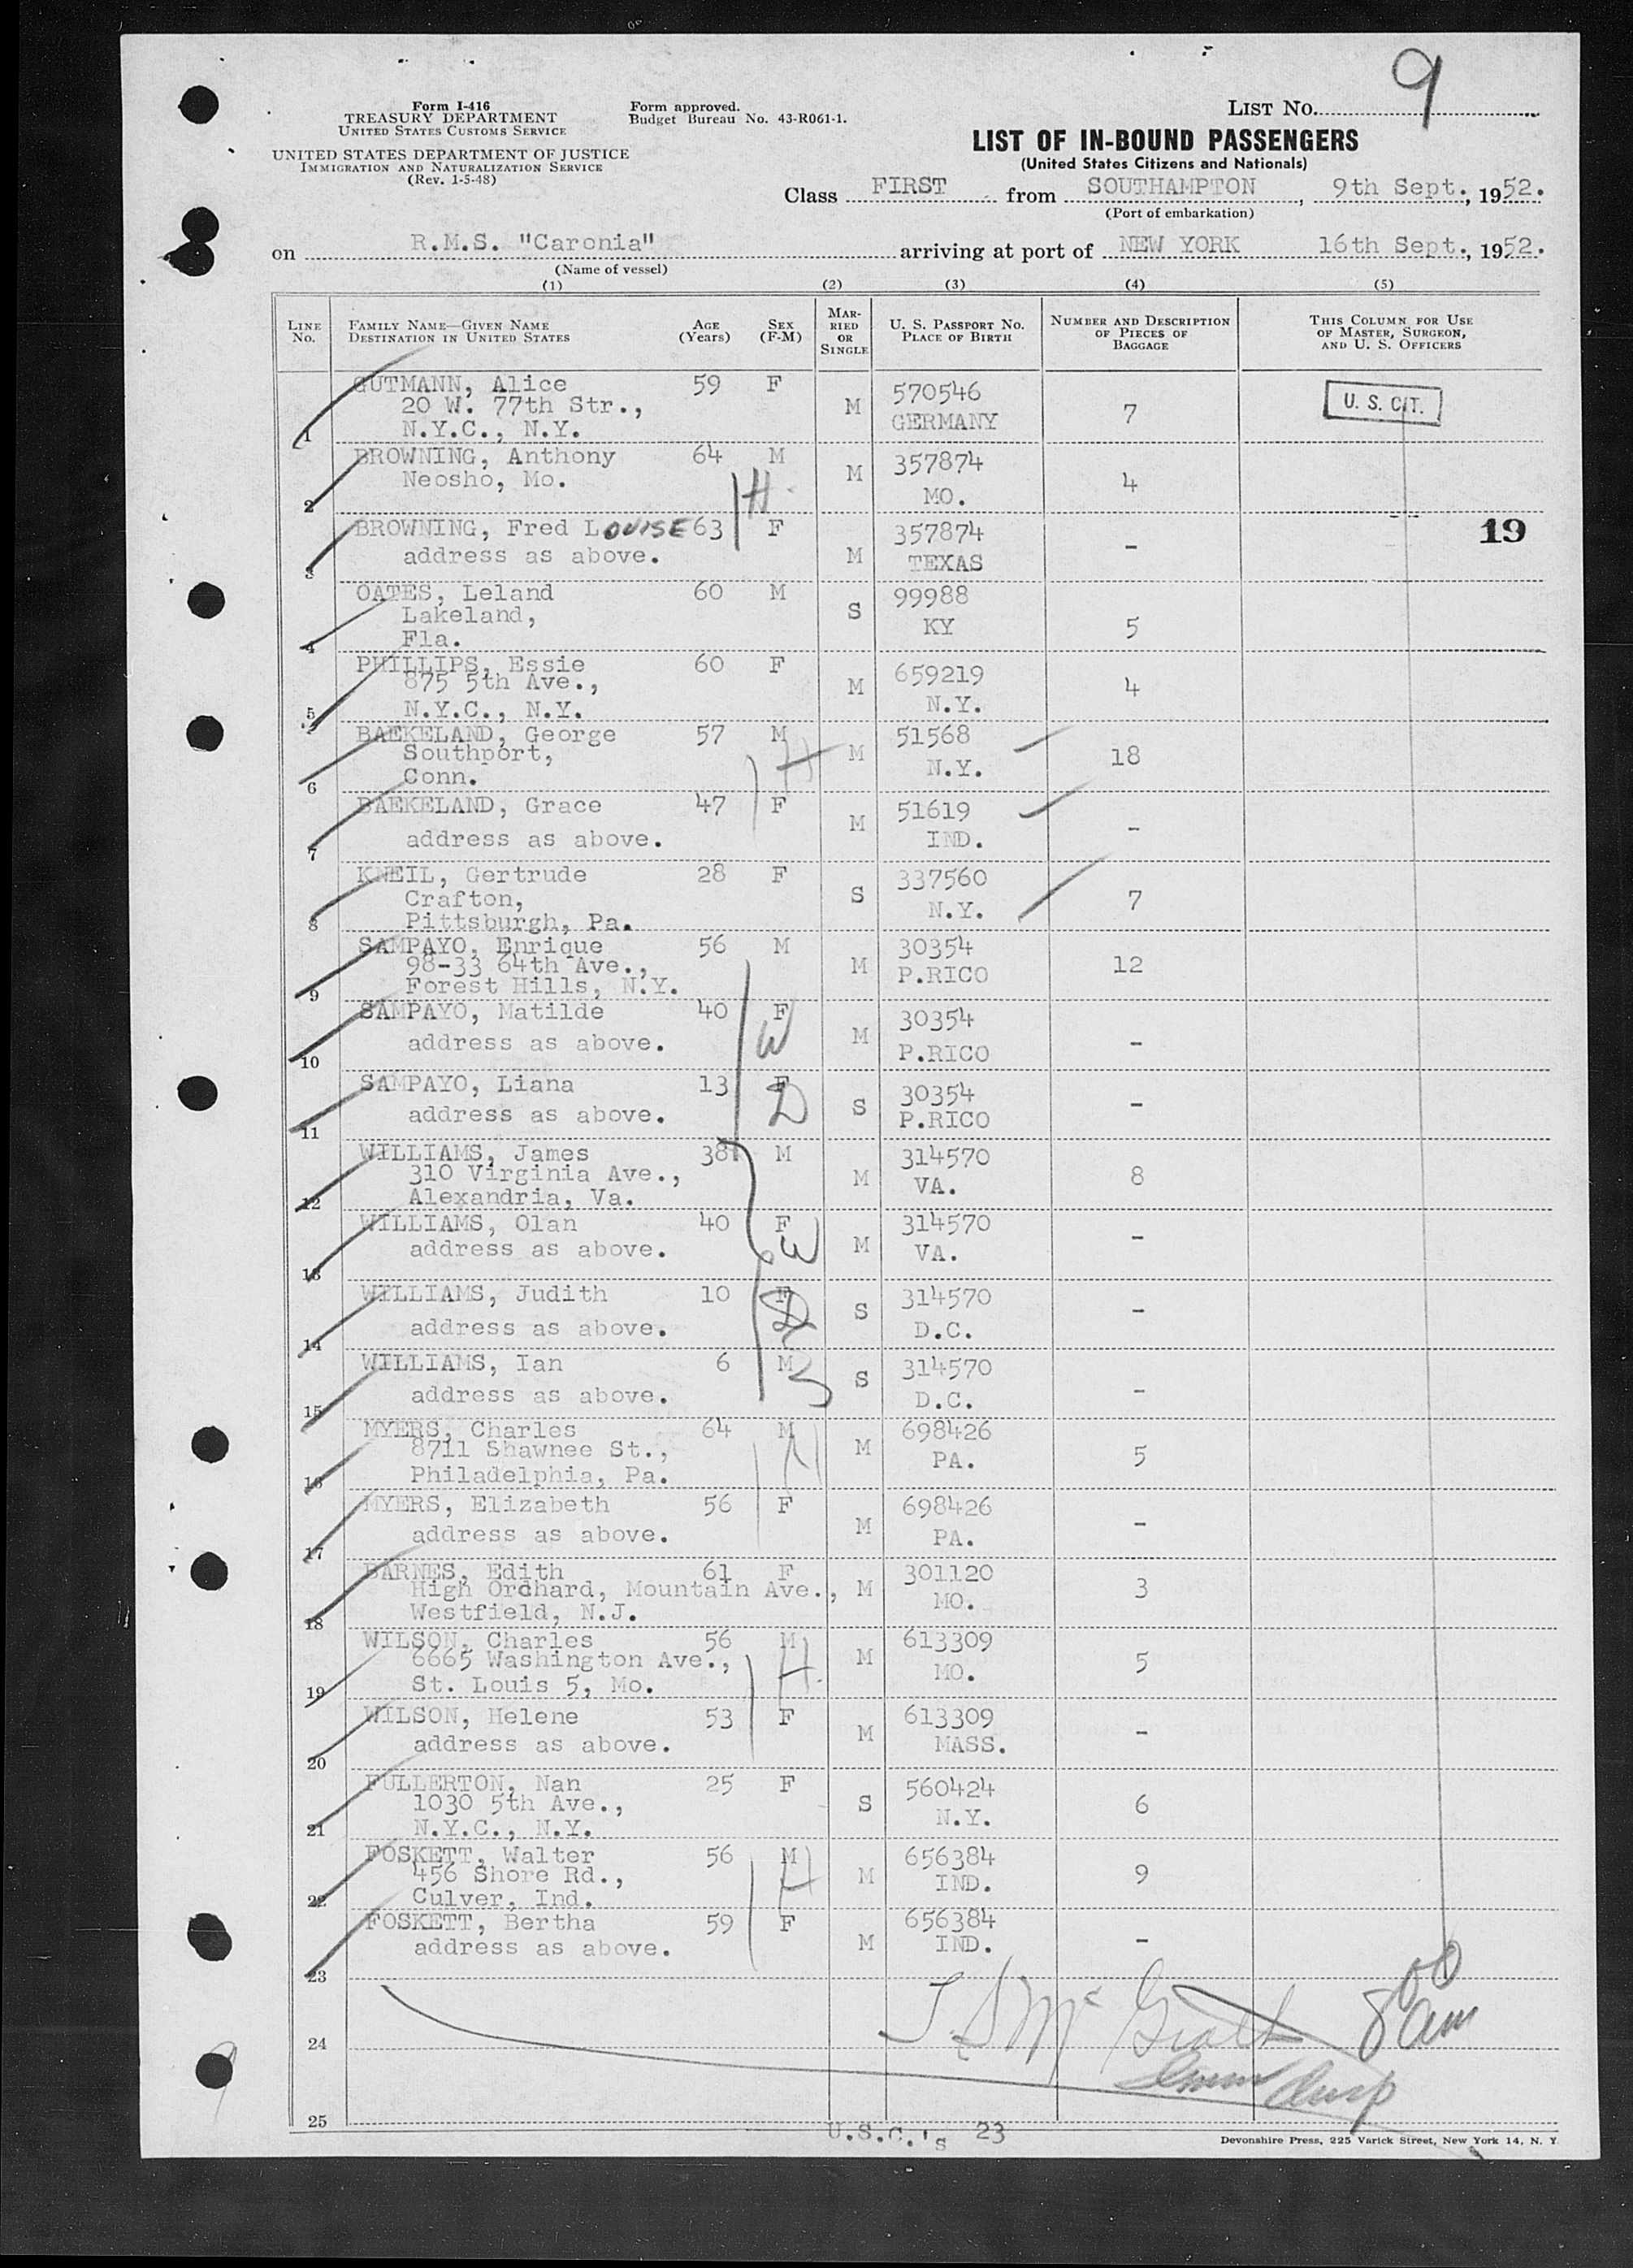 9
Form I-416
TREASURY DEPARTMENT
UNITED STATES CUSTOMS SERVICE
UNITED STATES DEPARTMENT OF JUSTICE
IMMIGRATION AND NATURALIZATION SERVICE
(Rev. 1-5-48)
Form approved.
Budget Bureau No. 43-R061-1.
LIST NO.
LIST OF IN-BOUND PASSENGERS
(United States Citizens and Nationals)
Class FIRST from SOUTHAMPTON, 9th Sept., 1952.
(Port of embarkation)
on R.M.S. "Caronia" arriving at port of NEW YORK 16th Sept., 1952.
(Name of vessel)
(1) (2) (3) (4) (5)
LINE NO. FAMILY NAME—GIVEN NAME DESTINATION IN UNITED STATES AGE (YEARS) SEX (F-M) MARRIED OR SINGLE U. S. PASSPORT NO. PLACE OF BIRTH NUMBER AND DESCRIPTION OF PIECES OF BAGGAGE THIS COLUMN FOR USE OF MASTER, SURGEON, AND U. S. OFFICERS
1 GUTMANN, Alice 59 F M 570546 7 U. S. CIT.
20 W. 77th Str., GERMANY
N.Y.C., N.Y.
2 BROWNING, Anthony 64 M M 357874 4
Neosho, Mo. MO.
H
3 BROWNING, Fred LOUISE 63 F M 357874 - 19
address as above. TEXAS
4 OATES, Leland 60 M S 99988 5
Lakeland, KY
Fla.
5 PHILLIPS, Essie 60 F M 659219 4
875 5th Ave., N.Y.
N.Y.C., N.Y.
6 BAEKELAND, George 57 M M 51568 18
Southport, N.Y.
Conn.
H
7 BAEKELAND, Grace 47 F M 51619 -
address as above. IND.
8 KNEIL, Gertrude 28 F S 337560 7
Crafton, N.Y.
Pittsburgh, Pa.
9 SAMPAYO, Enrique 56 M M 30354 12
98-33 64th Ave., P.RICO
Forest Hills, N.Y.
10 SAMPAYO, Matilde 40 F M 30354 -
address as above. W P.RICO
11 SAMPAYO, Liana 13 F S 30354 -
address as above. D P.RICO
12 WILLIAMS, James 38 M M 314570 8
310 Virginia Ave., VA.
Alexandria, Va.
13 WILLIAMS, Olan 40 F M 314570 -
address as above. W VA.
14 WILLIAMS, Judith 10 F S 314570 -
address as above. D D.C.
15 WILLIAMS, Ian 6 M S 314570 -
address as above. D.C.
16 MYERS, Charles 64 M M 698426 5
8711 Shawnee St., PA.
Philadelphia, Pa.
H
17 MYERS, Elizabeth 56 F M 698426 -
address as above. PA.
18 BARNES, Edith 61 F M 301120 3
High Orchard, Mountain Ave., MO.
Westfield, N.J.
19 WILSON, Charles 56 M M 613309 5
6665 Washington Ave., MO.
St. Louis 5, Mo.
H
20 WILSON, Helene 53 F M 613309 -
address as above. MASS.
21 FULLERTON, Nan 25 F S 560424 6
1030 5th Ave., N.Y.
N.Y.C., N.Y.
22 FOSKETT, Walter 56 M M 656384 9
456 Shore Rd., IND.
Culver, Ind.
H
23 FOSKETT, Bertha 59 F M 656384 -
address as above. IND.
24 8 00 am
Imm Insp
25
U.S.C.'s 23
Devonshire Press, 225 Varick Street, New York 14, N. Y.